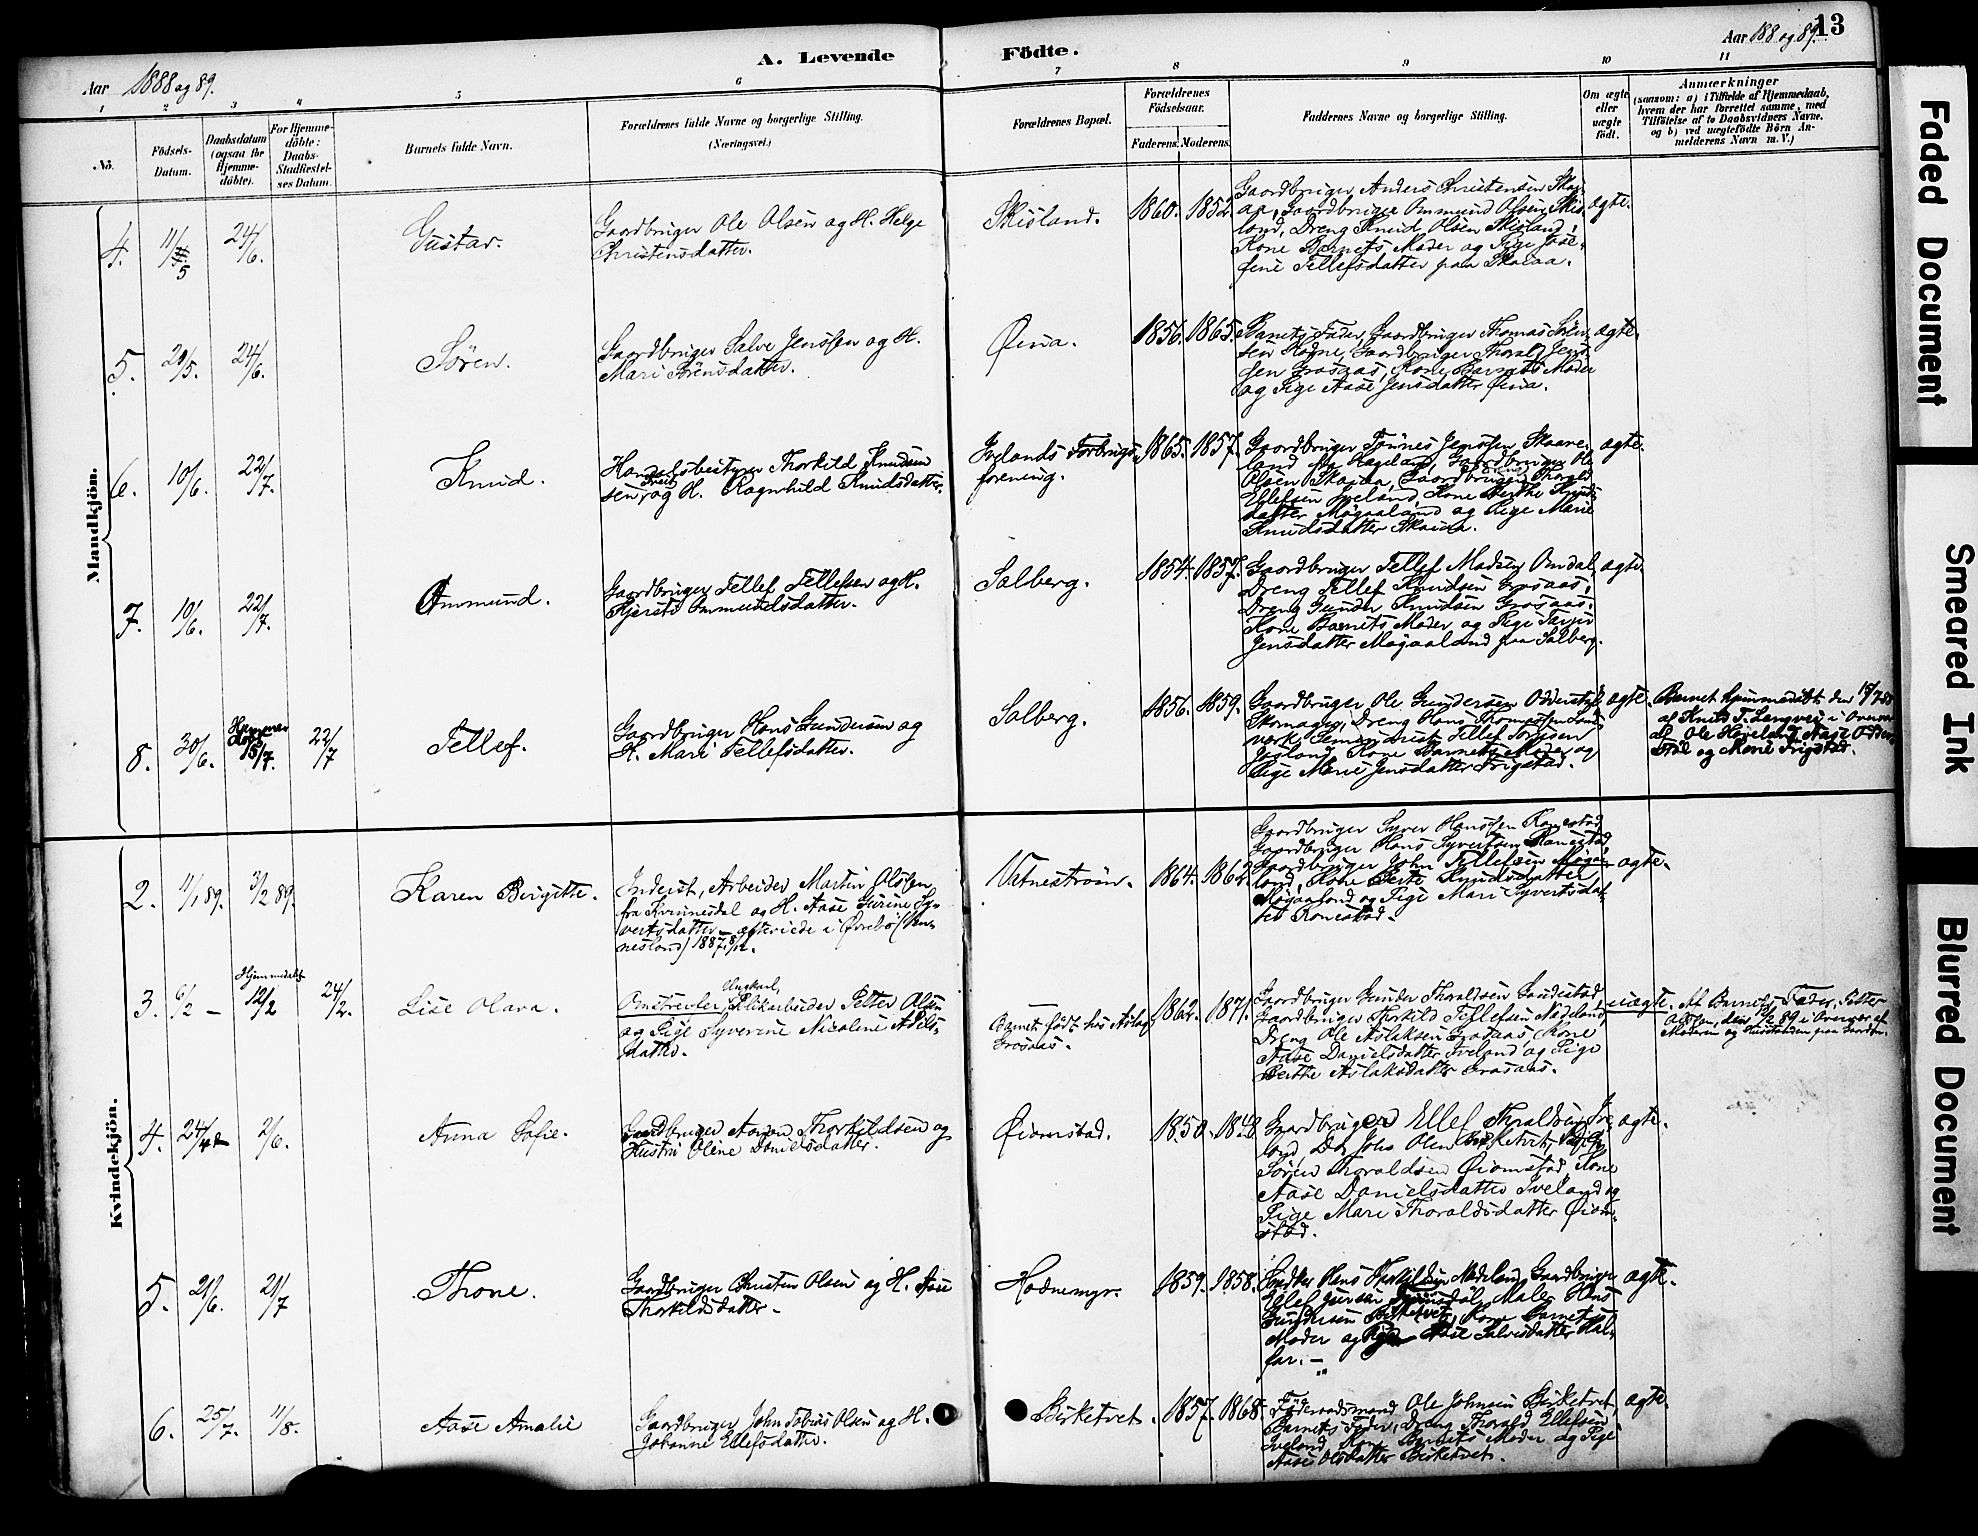 13
A. Levende Födte.
Aar 1888 og 89.
Aar 188 og 89.
1 2 3 4 5 6 7 8 9 10 11
No.
Födsels-
Datum.
Daabsdatum
(ogsaa for
Hjemme-
döbte).
For Hjemme-
döbte:
Daabs-
Stadfæstel-
ses Datum.
Barnets fulde Navn.
Forældrenes fulde Navne og borgerlige Stilling.
(Næringsvei.)
Forældrenes Bopæl.
Forældrenes
Födselsaar.
Faderens. Moderens.
Faddernes Navne og borgerlige Stilling.
Om ægte
eller
uægte
födt.
Anmærkninger
(saasom: a) i Tilfælde af Hjemmedaab,
hvem der har forrettet samme, med
Tilföielse af to Daabsvidners Navne.
og b) ved uægtefödte Börn An-
melderens Navn m. V.)
Mandkjön.
4. 11/5 24/6. Gustav.
Gaardbruger Ole Olsen og H. Helge
Christensdatter.
Skisland. 1860. 1852
Gaardbruger Anders Christensen Skai-
aa, Gaardbruger Ommund Olsen Skis-
land, Dreng Knud Olsen Skisland,
Kone Barnets Moder og Pige Jose-
fine Tellefsdatter paa Skaiaa.
ægte.
5. 29/5. 24/6. Sören.
Gaardbruger Salve Jensen og H.
Mari Sörensdatter.
Øina. 1856. 1865.
Barnets Fader, Gaardbruger Thomas Sören-
sen Hodne, Gaardbruger Thorald Jens-
sen Grosaas, Kone Barnets Moder
og Pige Aase Jensdatter Øina.
ægte.
6. 10/6. 22/7. Knud.
Handelsbestyrer Thorkild Knudsen
sen og H. Ragnhild Knudsdatter.
Ivelands Forbrugs-
forening.
1865. 1857.
Gaardbruger Tönnes Jensen Skaare-
land Hægeland, Gaardbruger Ole
Olsen Skaiaa, Gaardbruger Thorald
Ellefsen Iveland, Kone Berthe Knuds-
datter Møgaaland og Pige Marie
Knudsdatter Skaiaa.
ægte.
7. 10/6. 22/7. Ommund.
Gaardbruger Tellef Tellefsen og H.
Kjersti Ommundsdatter.
Salberg. 1854. 1857.
Gaardbruger Tellef Madsen Omdal
Dreng Tellef Knudsen Grosaas,
Dreng Gunder Knudsen Grosaas,
Kone Barnets Moder og Pige
Jensdatter Møgaaland paa Salberg.
ægte
8. 30/6. 15/7. 22/7 Tellef.
Gaardbruger Hans Gundersen og
H. Mari Tellefsdatter.
Salberg. 1856. 1859.
Gaardbruger Ole Gundersen Odderstøl
Skomager, Dreng Hans Thomassen
Tellef
Kone Barnets Moder og
Pige Marie Jensdatter Frigstad.
ægte.
Barnet hjemmedøbt den 15/7
af Knud T. Langvei i Overvær
af Ole Aase Odder-
støl og Frigstad.
Kvindekjön.
2. 11/1 89. 3/2 89. Karen Birgitte.
Inderst, Arbeider Martin Olsen
fra Kvinnesdal og H. Aase Gurine Sy-
vertsdatter – i Øvrebø (Ven-
nesland) 1887.
Vatnestrøm. 1864. 1862.
Gaardbruger Syver Hansen Ronestad,
Gaardbruger Hans Syvertsen Ronestad,
Gaardbruger John Tellefsen Møgaa-
land, Kone Berte Knudsdatter
Møgaaland og Pige Mari Syvertsdat-
ter Ronestad.
ægte.
3. 6/2 – Hjemmedøbt 12/2 24/2. Lise Olava.
Ungkarl,
Omstreifer, Blikarbeider Petter Olsen
og Pige Syverine Nicoline Adils-
datter.
Barnet født hos Aslag
Grosaas.
1862. 1871.
Gaardbruger Gunder Thoraldsen Sandestad
Gaardbruger Thorkild Tellefsen Nædeland,
Dreng Ole Aslaksen Grosaas, Kone
Aase Danielsdatter Iveland og Pige
Berthe Aslaksdatter Grosaas.
uægte.
Af Barnets Fader, Petter
Olsen, den 12/2 89 i Overvær af
Moderen og Husstanden paa Gaarden.
4. 24/4 2/6. Anna Sofie.
Gaardbruger Aanon Thorkildsen og
Hustru Oline Danielsdatter.
Øiomstad. 1850. 1848
Gaardbruger Ellef Thoraldsen Ive-
land, Do John Olsen Birketvet,
Sören Thoraldsen Øiomstad, Kone
Aase Danielsdatter Iveland og
Pige Mari Thoraldsdatter Øiom-
stad.
ægte.
5. 21/6. 21/7 Thone.
Gaardbruger Christen Olsen og H. Aase
Thorkildsdatter –
Hodnemyr. 1859. 1858.
Hans Thorkildsen Nædeland, Gaardbruger
Ellef Maler Hans
Gundersen Birketvet, Kone Barnets
Moder og Pige Aase Salvesdatter Kal-
far. –
ægte.
6. 25/7. 11/8. Aase Amalie
Gaardbruger John Tobias Olsen og H.
Johanne Ellefsdatter.
Birketvet. 1857. 1868.
Föderaadsmand Ole Johnsen Birketvet,
Barnets Fader, Dreng Thorald Ellefsen
Iveland, Kone Barnets Moder og Pige
Aase Olsdatter Birketvet.
ægte.
Faded Document
Smeared Ink
Blurred Document